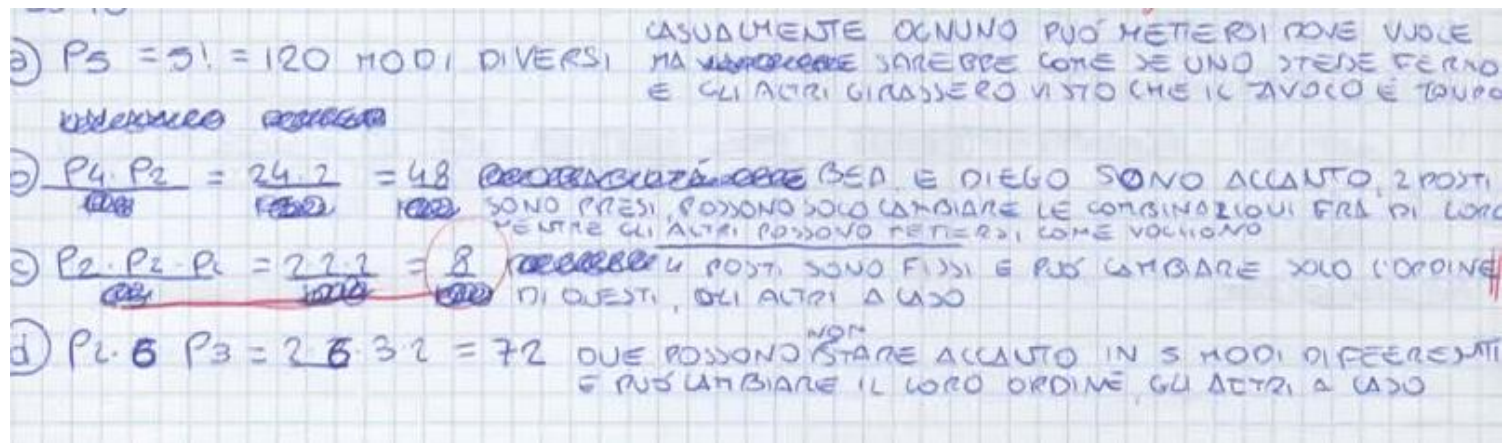 CASUALMENTE OGNUNO PUÓ METTERSI DOVE VUOLE
a) P5 = 5! = 120 MODI DIVERSI MA SAREBBE COME SE UNO STESSE FERMO
E GLI ALTRI GIRASSERO VISTO CHE IL TAVOLO É TONDO
b) P4·P2 = 24·2 = 48 BEA E DIEGO SONO ACCANTO, 2 POSTI
SONO PRESI, POSSONO SOLO CAMBIARE LE COMBINAZIONI FRA DI LORO
MENTRE GLI ALTRI POSSONO METTERSI COME VOGLIONO
c) P2·P2·P2 = 2·2·2 = 8 4 POSTI SONO FISSI E PUÓ CAMBIARE SOLO L'ORDINE
DI QUESTI, GLI ALTRI A CASO
d) P2·6 P3 = 2 6·3·2 = 72 DUE POSSONO NON STARE ACCANTO IN 5 MODI DIFFERENTI
E PUÓ CAMBIARE IL LORO ORDINE, GLI ALTRI A CASO